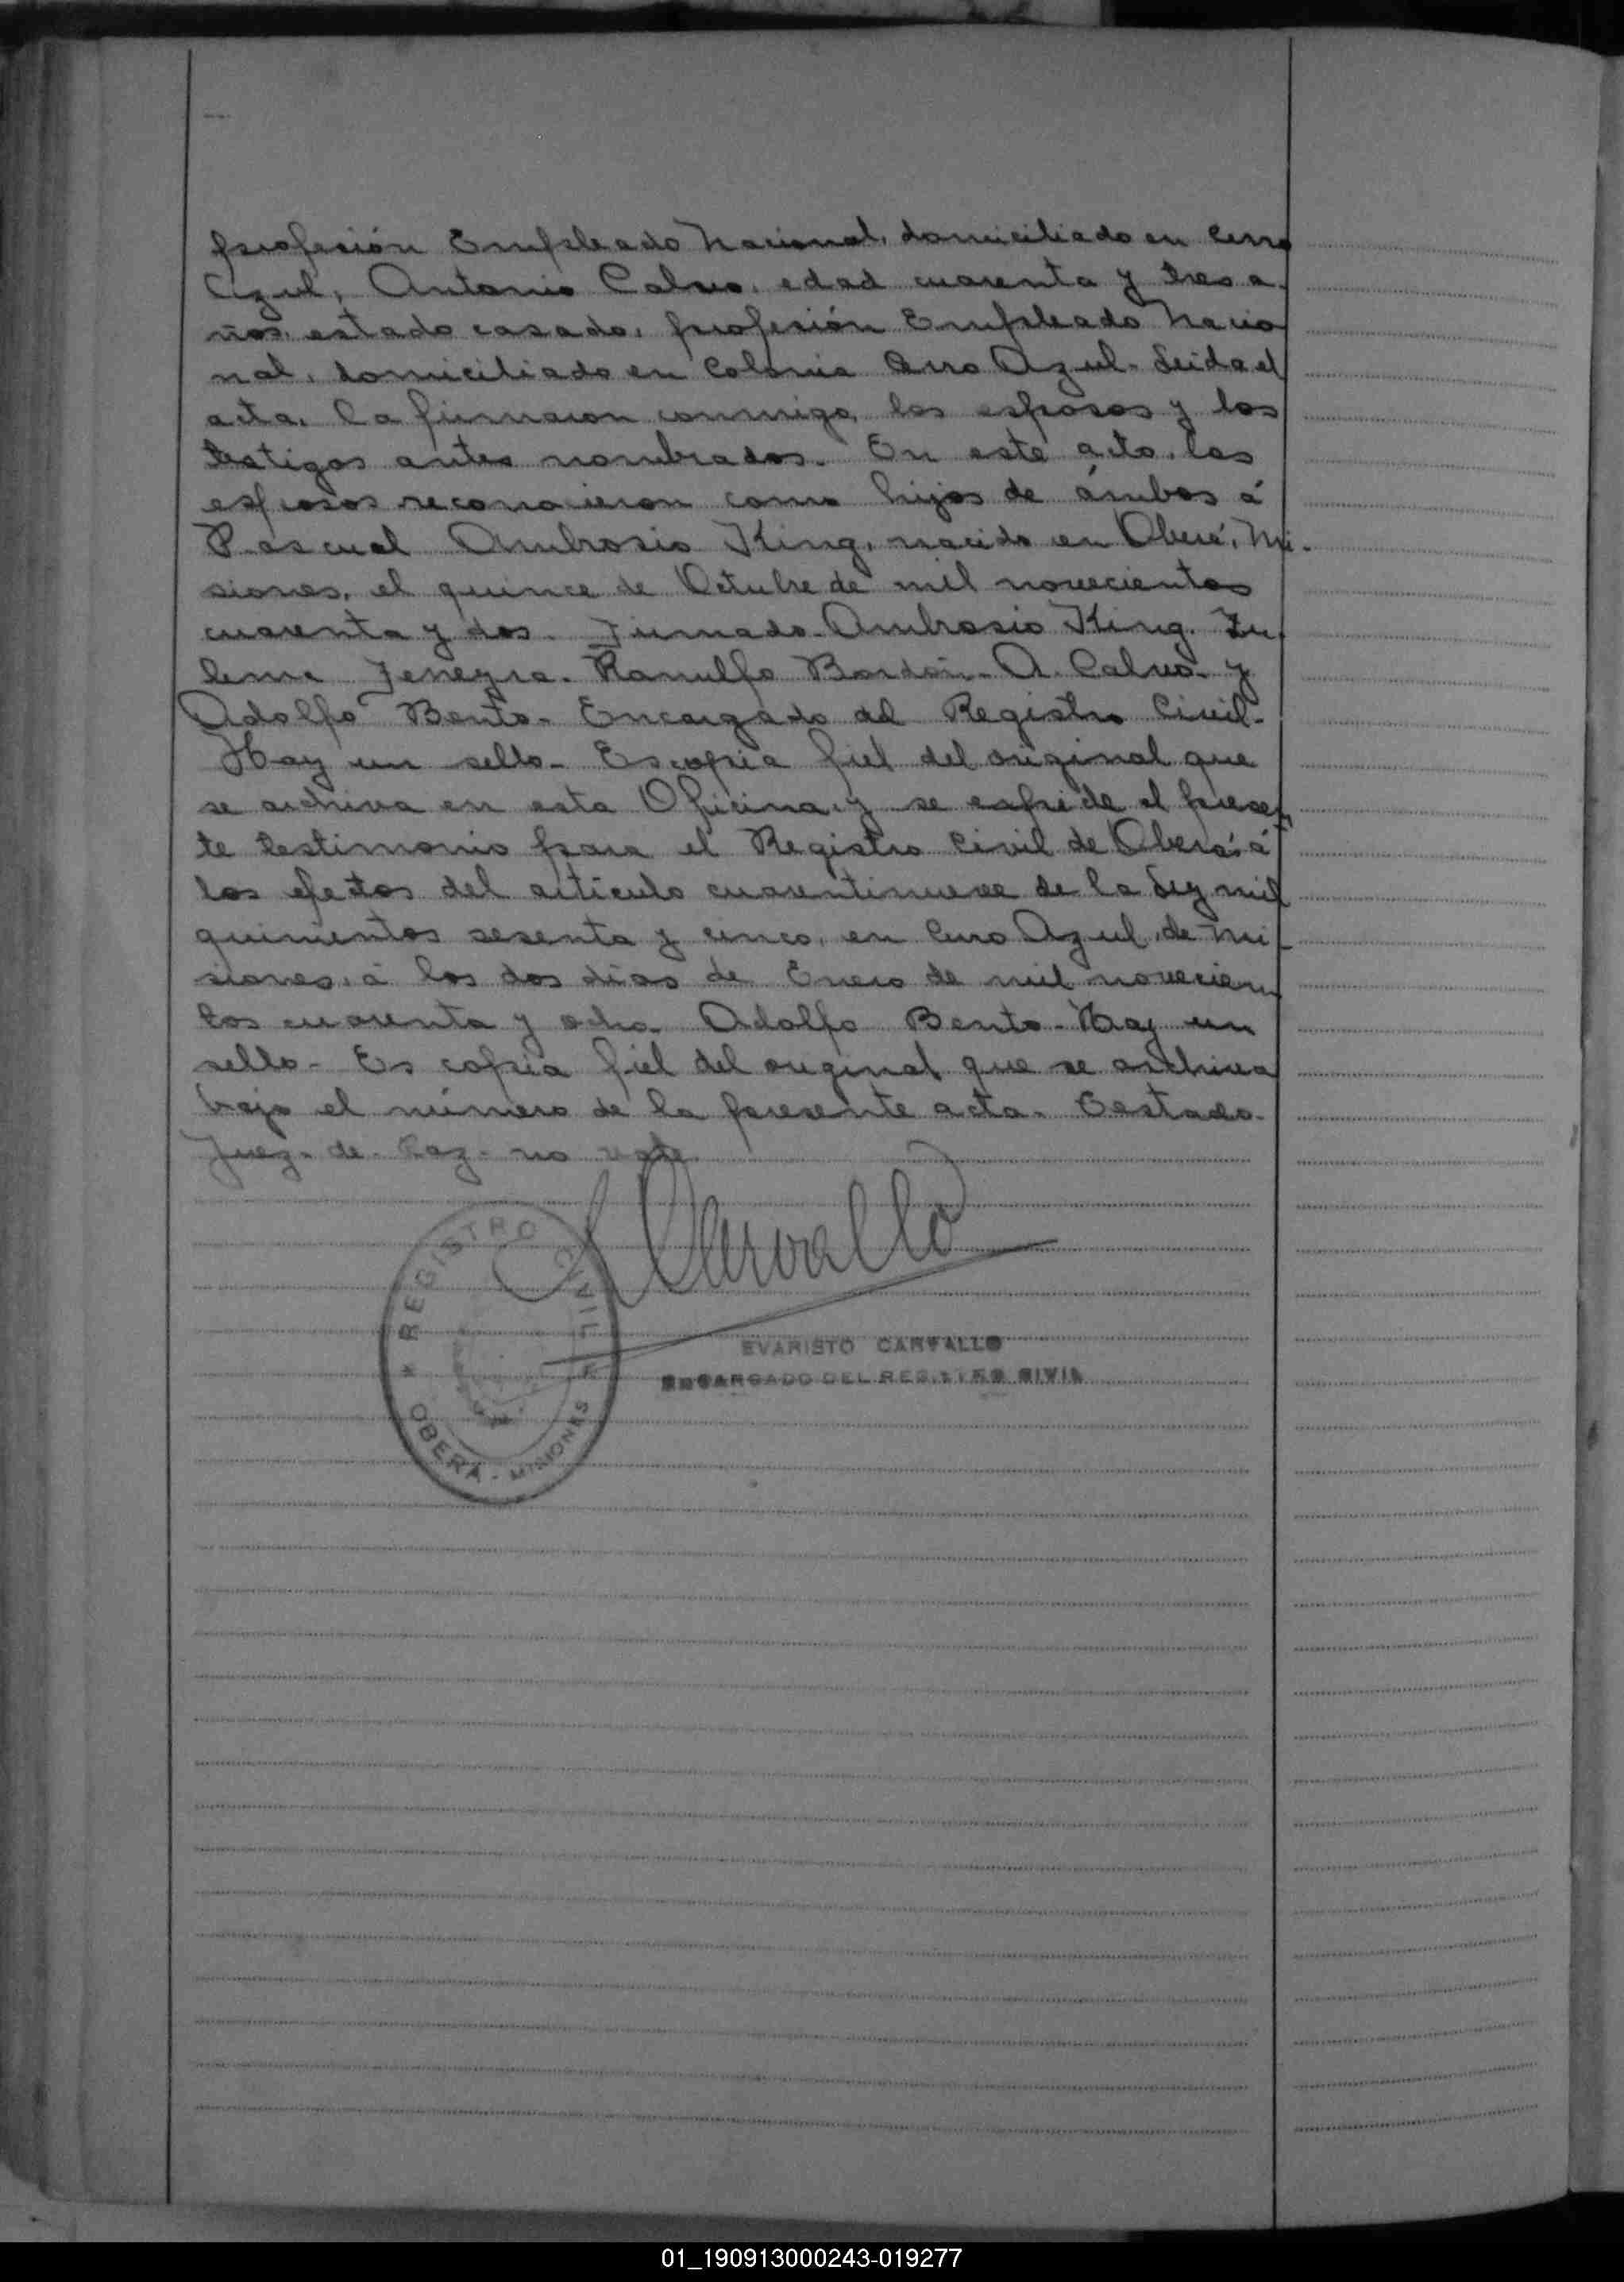 profesión Empleado Nacional, domiciliado en Cerro
Azul; Antonio Calvo, edad cuarenta y tres a-
ños, estado casado, profesión Empleado Nacio
nal, domiciliado en Colonia Cerro Azul. Leida el
acta, la firmaron conmigo, los esposos y los
testigos antes nombrados. En este acto, los
esposos reconocieron como hijos de ámbos á
Pascual Ambrosio King, nacido en Oberá, Mi-
siones, el quince de Octubre de mil novecientos
cuarenta y dos. Firmado. Ambrosio King. Zu-
lema Ferreyra. Ranulfo Bordón. A. Calvo. y
Adolfo Bento. Encargado del Registro Civil.
Hay un sello. Es copia fiel del original que
se archiva en esta Oficina y se expide el presen
te testimonio para el Registro Civil de Oberá, á
los efectos del artículo cuarentinueve de la Ley mil
quinientos sesenta y cinco, en Cerro Azul, de Mi-
siones, á los dos dias de Enero de mil novecien
tos cuarenta y ocho. Adolfo Bento. Hay un
sello. Es copia fiel del original que se archiva
bajo el número de la presente acta. Testado.
Juez. de. Paz. no vale
Carvallo
REGISTRO CIVIL
OBERÁ - MISIONES
EVARISTO CARVALLO
ENCARGADO DEL REGISTRO CIVIL
01_190913000243-019277